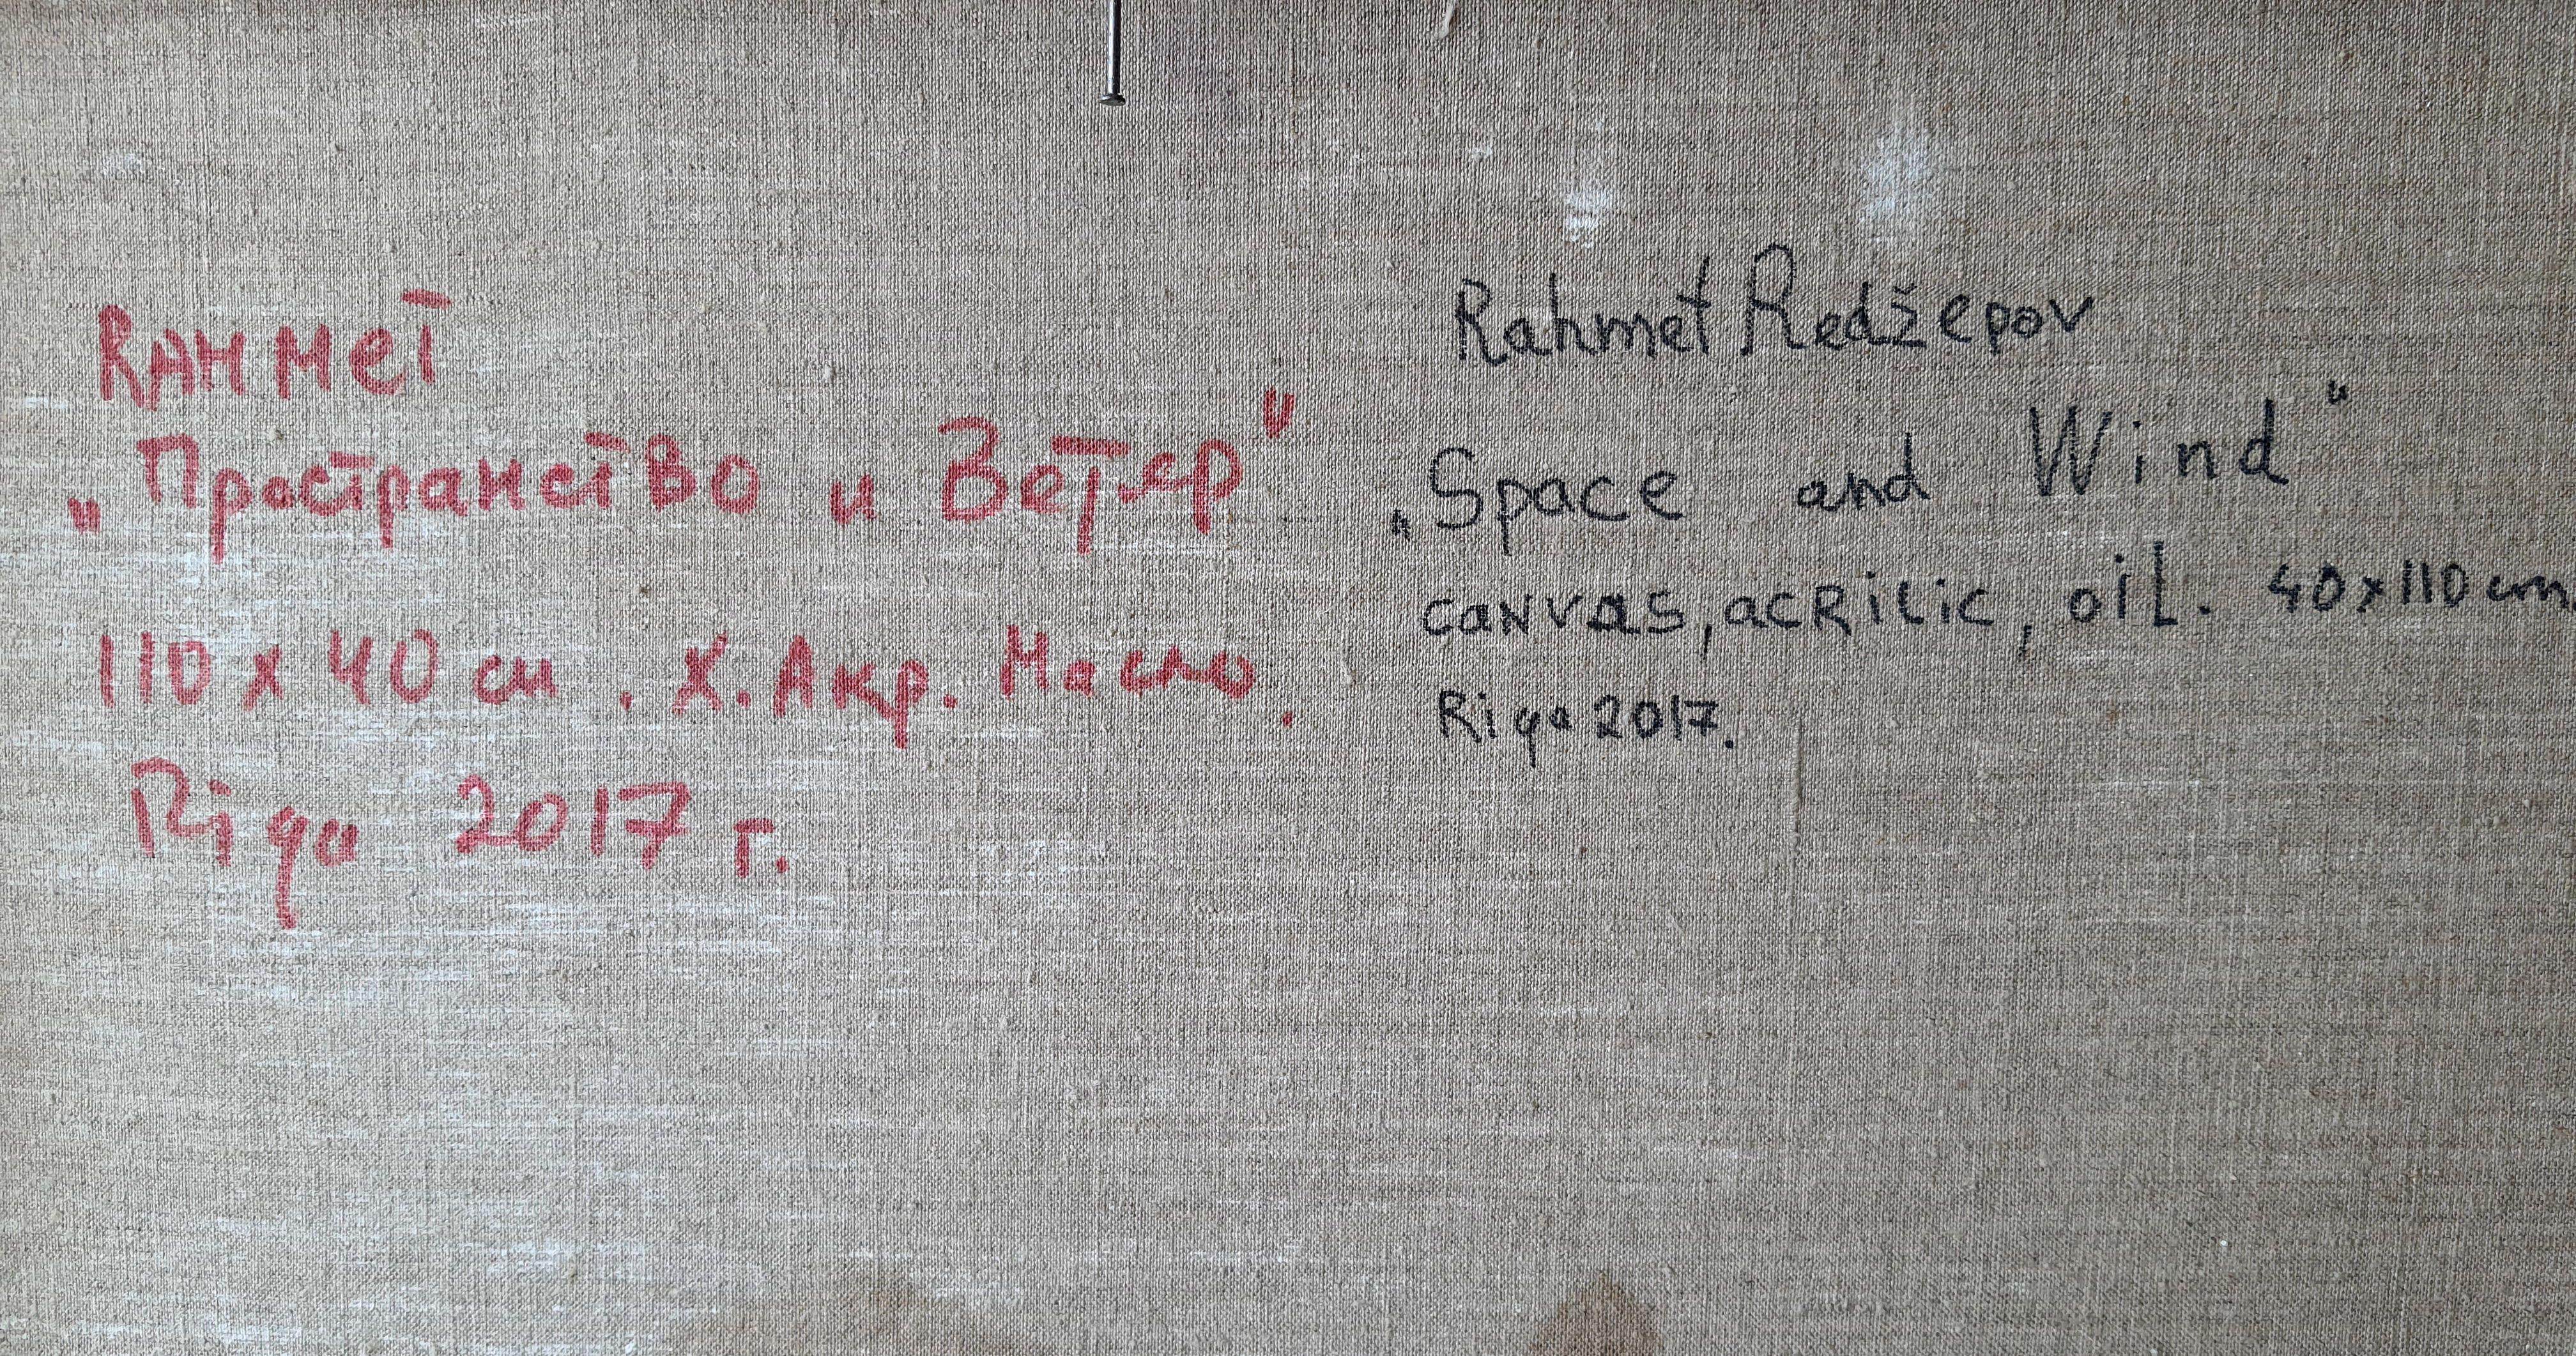 RAHMET
„Пространство и Ветер"
110 x 40 см. Х. Акр. Масло.
Riga 2017 г.
Rahmet Redžepov
„Space and Wind"
canvas, acrilic, oil. 40x110 cm
Riga 2017.